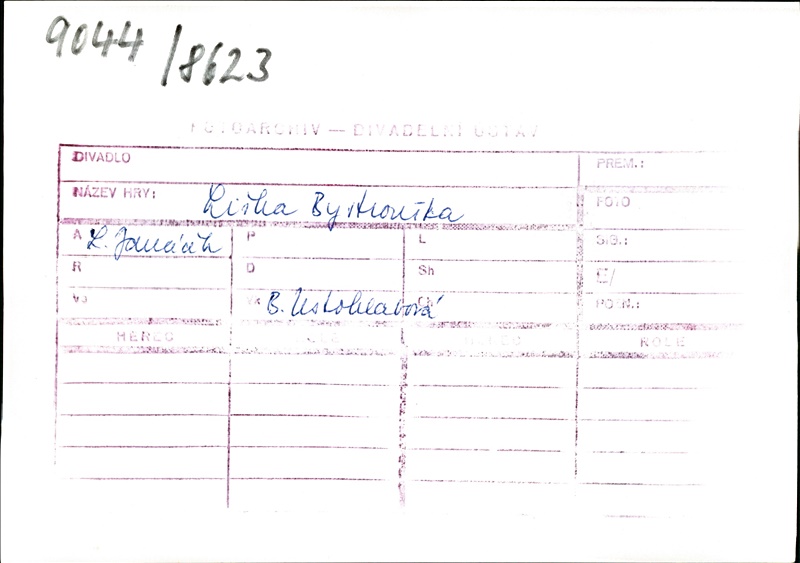 9044/8623
FOTOARCHIV — DIVADELNÍ ÚSTAV
DIVADLO PREM.:
NÁZEV HRY: Liška Bystrouška FOTO
A L. Janáček P L SIG.:
R D Sh Č/
Vs Vk B. Ustohlavová Ch POZN.:
HEREC ROLE HEREC ROLE